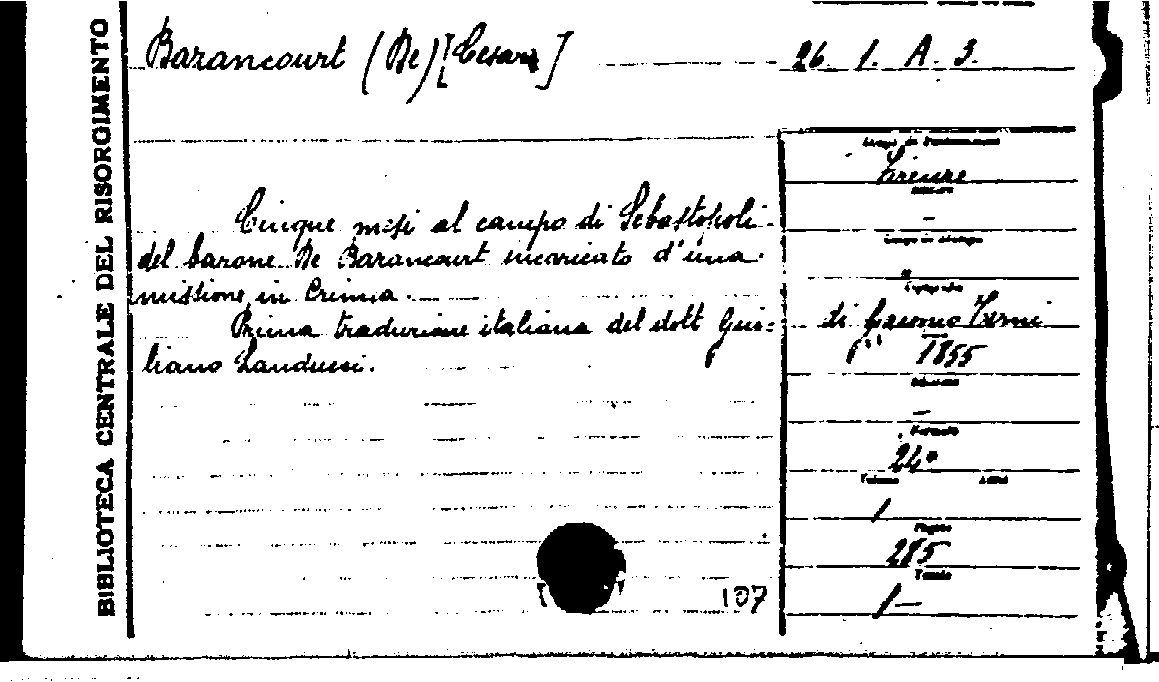 BIBLIOTECA CENTRALE DEL RISORGIMENTO
Barancourt (De) [Cesare]
26. 1. A. 3.
Luogo di Pubblicazione
Firenze
Cinque mesi al campo di Sebastopoli
del barone De Barancourt incaricato d'una
missione in Crimea.
Prima traduzione italiana del dott Giu=
liano Landucci.
–
"
Tipografia
di Giacomo Terni
1855
–
Formato
24°
Volume
1
Pagine
285
Tavole
1 –
107